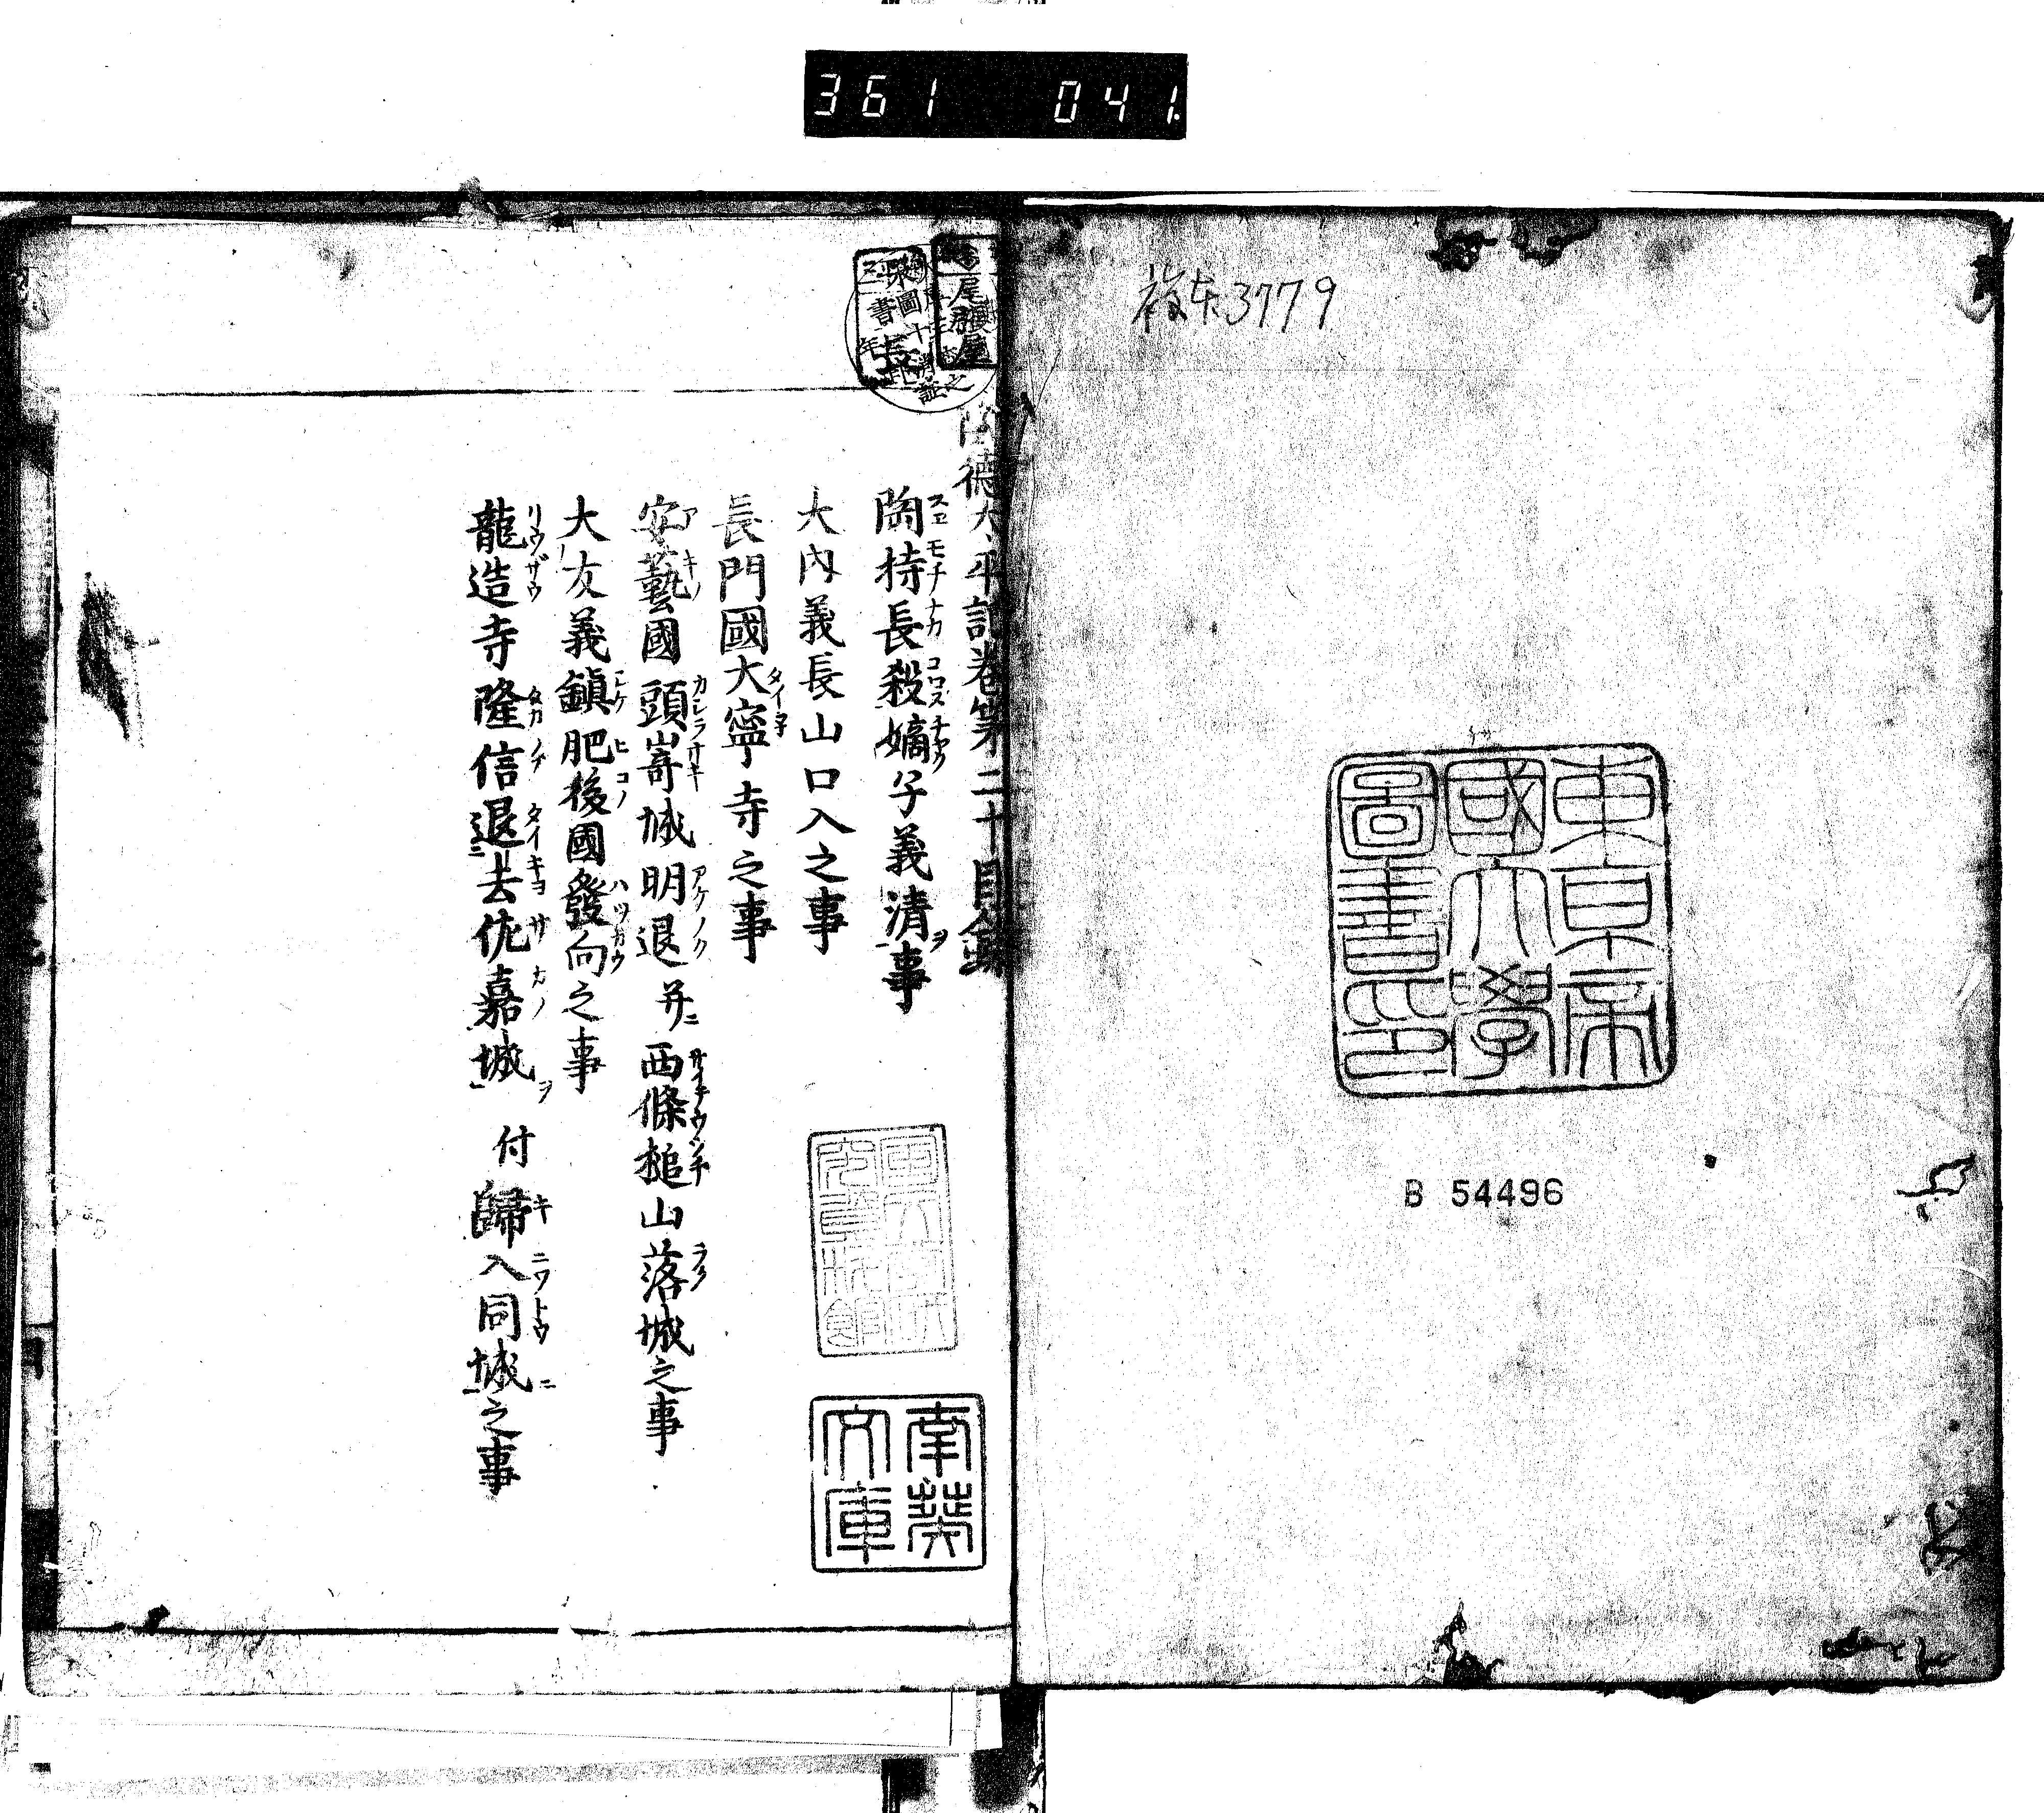 361 041.
複本3779
東京帝
國大學
圖書印
B 54496
陰徳太平記巻第二十目録
陶持長殺嫡子義清事
大内義長山口入之事
長門國大寧寺之事
安藝國頭嵜城明退并西條槌山落城之事
大友義鎮肥後國發向之事
龍造寺隆信退去佐嘉城付歸入同城之事
南葵
文庫